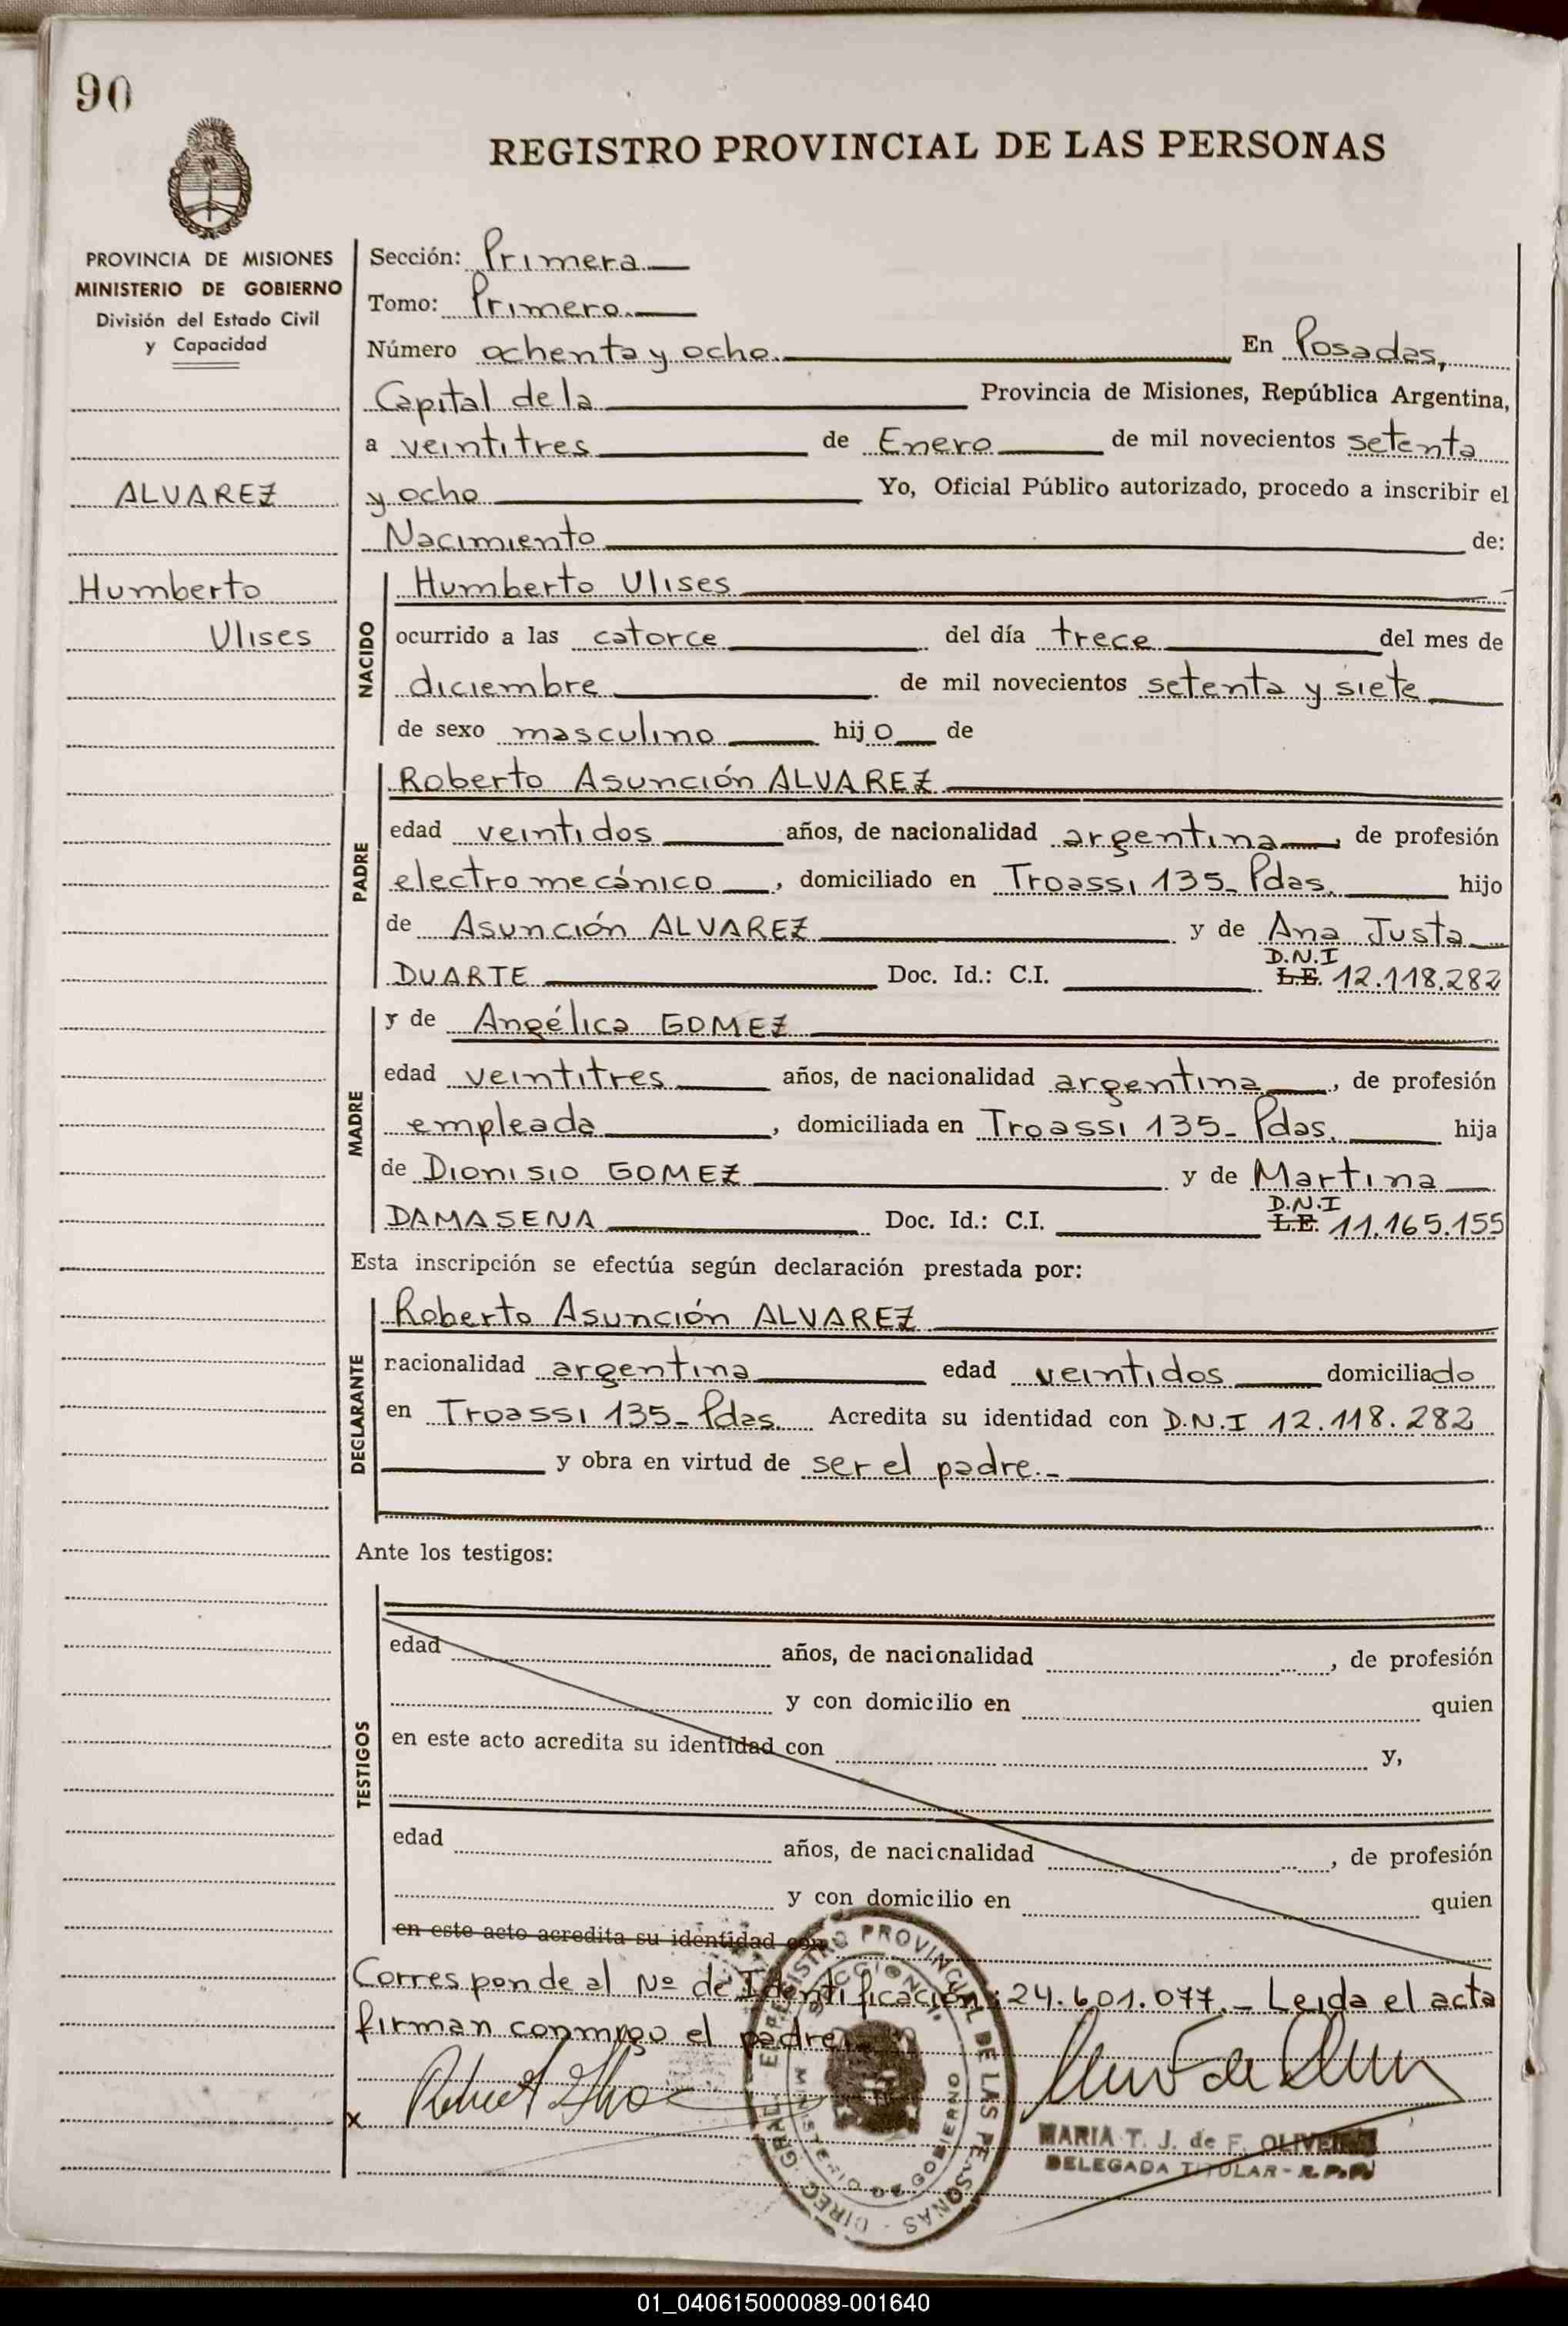 90
REGISTRO PROVINCIAL DE LAS PERSONAS
PROVINCIA DE MISIONES
MINISTERIO DE GOBIERNO
División del Estado Civil
y Capacidad
ALVAREZ
Humberto
Ulises
Sección: Primera
Tomo: Primero
Número ochenta y ocho. En Posadas,
Capital de la Provincia de Misiones, República Argentina,
a veintitres de Enero de mil novecientos setenta
y ocho Yo, Oficial Público autorizado, procedo a inscribir el
Nacimiento de:
NACIDO
Humberto Ulises
ocurrido a las catorce del día trece del mes de
diciembre de mil novecientos setenta y siete
de sexo masculino hijo de
PADRE
Roberto Asunción ALVAREZ
edad veintidos años, de nacionalidad argentina, de profesión
electromecánico, domiciliado en Troassi 135- Pdas. hijo
de Asunción ALVAREZ y de Ana Justa
D.N.I
DUARTE Doc. Id.: C.I. L.E. 12.118.282
MADRE
y de Angélica GOMEZ
edad veintitres años, de nacionalidad argentina, de profesión
empleada, domiciliada en Troassi 135- Pdas. hija
de Dionisio GOMEZ y de Martina
D.N.I
DAMASENA Doc. Id.: C.I. L.E. 11.165.155
Esta inscripción se efectúa según declaración prestada por:
DECLARANTE
Roberto Asunción ALVAREZ
nacionalidad argentina edad veintidos domiciliado
en Troassi 135- Pdas. Acredita su identidad con D.N.I 12.118.282
y obra en virtud de ser el padre.-
Ante los testigos:
TESTIGOS
edad años, de nacionalidad , de profesión
y con domicilio en quien
en este acto acredita su identidad con y,
edad años, de nacicnalidad , de profesión
y con domicilio en quien
en este acto acredita su identidad con
Corresponde al Nº de Identificación: 24.601.077.- Leida el acta
firman conmigo el padre
x
DIREC. GRAL. REGISTRO PROVINCIAL DE LAS PERSONAS
MINISTERIO DE GOBIERNO
MARIA T. J. de F. OLIVEIRA
DELEGADA TITULAR - R.P.P.
01_040615000089-001640